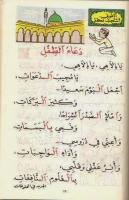 دُعَاءُ الطِّفْلِ
يَا إِلٰهِي، يَا إِلٰهِي،
يَا مُجِيبَ الدَّعَوَاتِ
اجْعَلِ الْيَوْمَ سَعِيدًا
وَكَثِيرَ الْبَرَكَاتِ
وَامْلَإِ الصَّدْرَ انْشِرَاحًا
وَفَمِي بِالْبَسَمَاتِ
وَأَعِنِّي فِي دُرُوسِي
وَأَدَاءِ الْوَاجِبَاتِ
وَأَنِرْ عَقْلِي وَقَلْبِي
بِالْعُلُومِ النَّافِعَاتِ